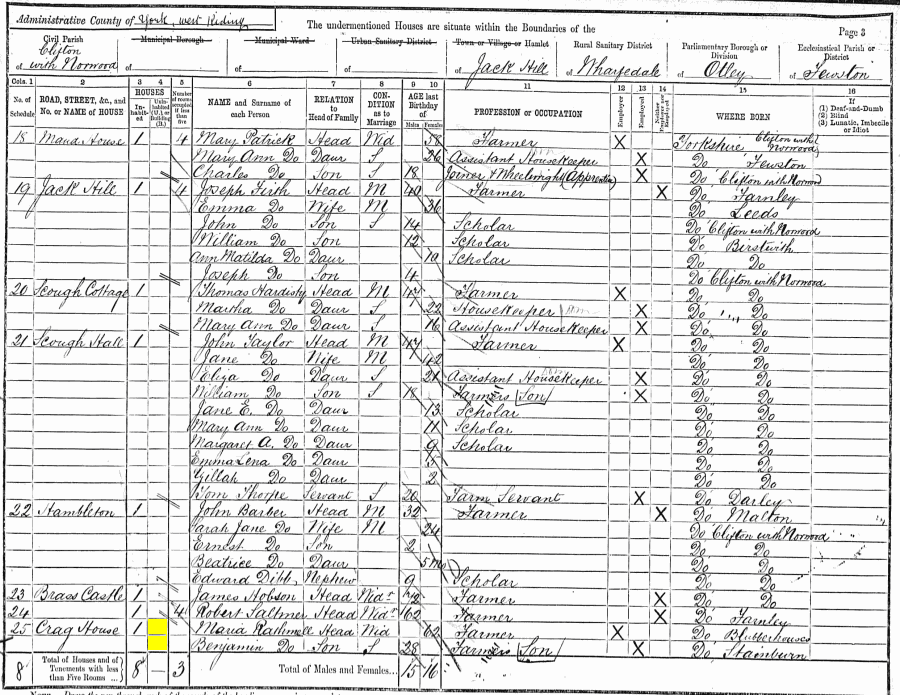 Administrative County of York, West Riding
The undermentioned Houses are situate within the Boundaries of the
Page 3
Civil Parish
of Clifton with Norwood
Municipal Borough
of
Municipal Ward
of
Urban Sanitary District
of
Town or Village or Hamlet
of Jack Hill
Rural Sanitary District
of Wharfedale
Parliamentary Borough or Division
of Otley
Ecclesiastical Parish or District
of Fewston
Cols. 1 2 3 4 5 6 7 8 9 10 11 12 13 14 15 16
No. of Schedule
ROAD, STREET, &c., and No. or NAME of HOUSE
HOUSES
Inhabited
Uninhabited (U.) or Building (B.)
Number of rooms occupied if less than five
NAME and Surname of each Person
RELATION to Head of Family
CONDITION as to Marriage
AGE last Birthday of
Males Females
PROFESSION or OCCUPATION
Employer
Employed
Neither Employer nor Employed
WHERE BORN
If
(1) Deaf-and-Dumb
(2) Blind
(3) Lunatic, Imbecile or Idiot
18 House 1 4 Mary Patrick Head Wid 58 Farmer X Yorkshire Clifton with Norwood
Mary Ann Do Daur S 26 Assistant Housekeeper X Do Fewston
Charles Do Son S 18 Joiner & Wheelwright (Apprentice) X Do Clifton with Norwood
19 Jack Hill 1 4 Joseph Firth Head M 40 Farmer X Do Farnley
Emma Do Wife M 36 Do Leeds
John Do Son S 14 Scholar Do Clifton with Norwood
William Do Son 12 Scholar Do Birstwith
Ann Matilda Do Daur 10 Scholar Do Do
Joseph Do Son 4 Do Clifton with Norwood
20 Scough Cottage 1 Thomas Hardisty Head M 47 Farmer X Do Do
Martha Do Daur S 22 Housekeeper X Do Do
Mary Ann Do Daur S 16 Assistant Housekeeper X Do Do
21 Scough Hall 1 John Taylor Head M 47 Farmer X Do Do
Jane Do Wife M 42 Do Do
Eliza Do Daur S 21 Assistant Housekeeper X Do Do
William Do Son S 18 Farmers Son X Do Do
Jane E. Do Daur 13 Scholar Do Do
Mary Ann Do Daur 11 Scholar Do Do
Margaret A. Do Daur 9 Scholar Do Do
Emma Lena Do Daur 5 Do Do
Gillah Do Daur 2 Do Do
Tom Thorpe Servant S 20 Farm Servant X Do Darley
22 Hambleton 1 John Barber Head M 32 Farmer X Do Malton
Sarah Jane Do Wife M 24 Do Clifton with Norwood
Ernest Do Son 2 Do Do
Beatrice Do Daur 5 mo Do Do
Edward Dibb Nephew 9 Scholar Do Do
23 Brass Castle 1 James Hobson Head Widr Farmer X Do Do
24 1 4 Robert Saltmer Head Widr 62 Farmer X Do Farnley
25 Crag House 1 Maria Rathmell Head Wid 62 Farmer X Do Blubberhouses
Benjamin Do Son S 28 Farmers Son X Do Stainburn
8 Total of Houses and of Tenements with less than Five Rooms ... 8 — 3 Total of Males and Females... 15 16